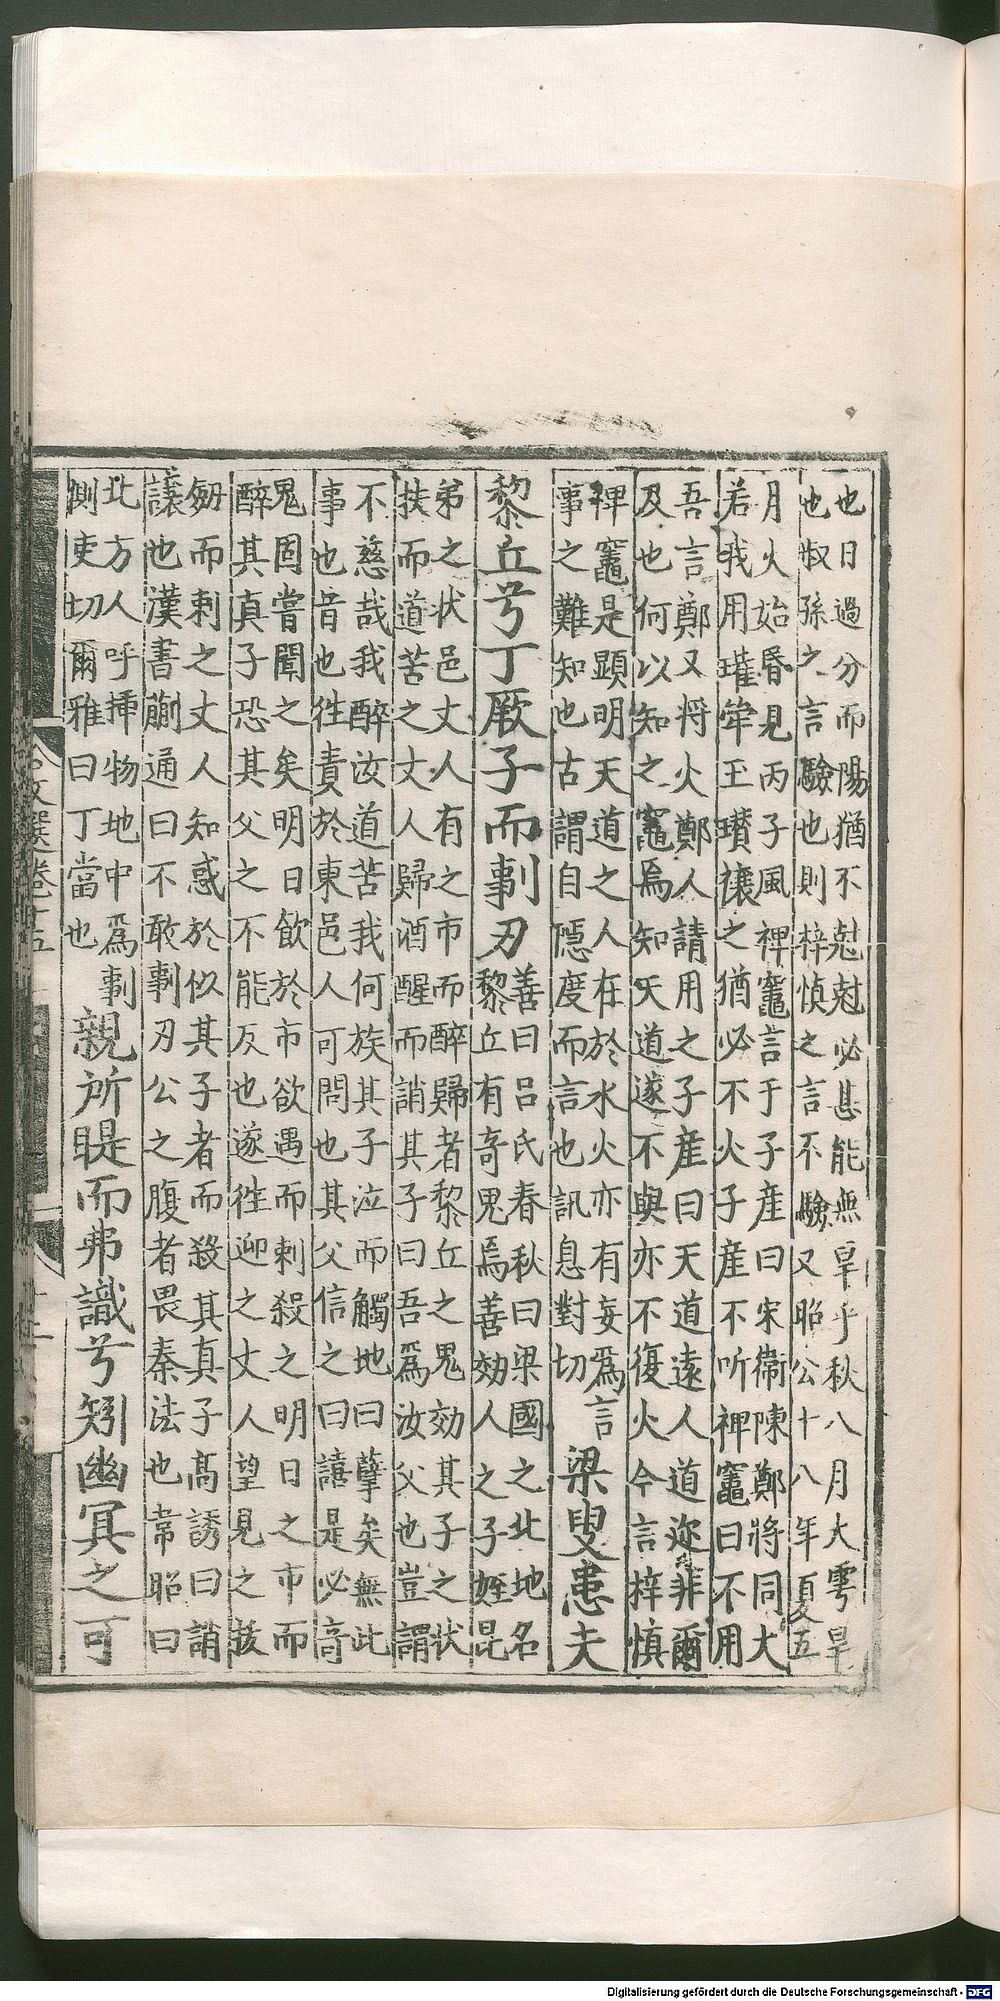 也日過分而陽猶不尅尅必甚能無旱乎秋八月大雩旱
也叔孫之言驗也則梓慎之言不驗又昭公十八年夏五
月火始昏見丙子風裨竈言于子產曰宋衞陳鄭將同大
若我用瓘斚玉瓚禳之猶必不火子產不听裨竈曰不用
吾言鄭又將火鄭人請用之子產曰天道遠人道迩非爾
及也何以知之竈焉知天道遂不與亦不復火今言梓慎
裨竈是顯明天道之人在於水火亦有妄爲言
事之難知也古謂自隱度而言也訊息對切
梁叟患夫
黎丘兮丁厥子而剚刃
善曰吕氏春秋曰梁國之北地名
黎丘有奇鬼焉善効人之子姪昆
弟之状邑丈人有之市而醉歸者黎丘之鬼効其子之状
扶而道苦之丈人歸酒醒而誚其子曰吾爲汝父也豈謂
不慈哉我醉汝道苦我何族其子泣而觸地曰孽矣無此
事也昔也徃責於東邑人可問也其父信之曰譆是必奇
鬼固嘗聞之矣明日飲於市欲遇而刺殺之明日之市而
醉其真子恐其父之不能反也遂徃迎之丈人望見之拔
劔而刺之丈人知惑於似其子者而殺其真子高誘曰誚
讓也漢書蒯通曰不敢剚刃公之腹者畏秦法也常昭曰
北方人呼揷物地中爲剚
側吏切爾雅曰丁當也
親所睼而弗識兮矧幽冥之可
文選卷十五
Digitalisierung gefördert durch die Deutsche Forschungsgemeinschaft - DFG